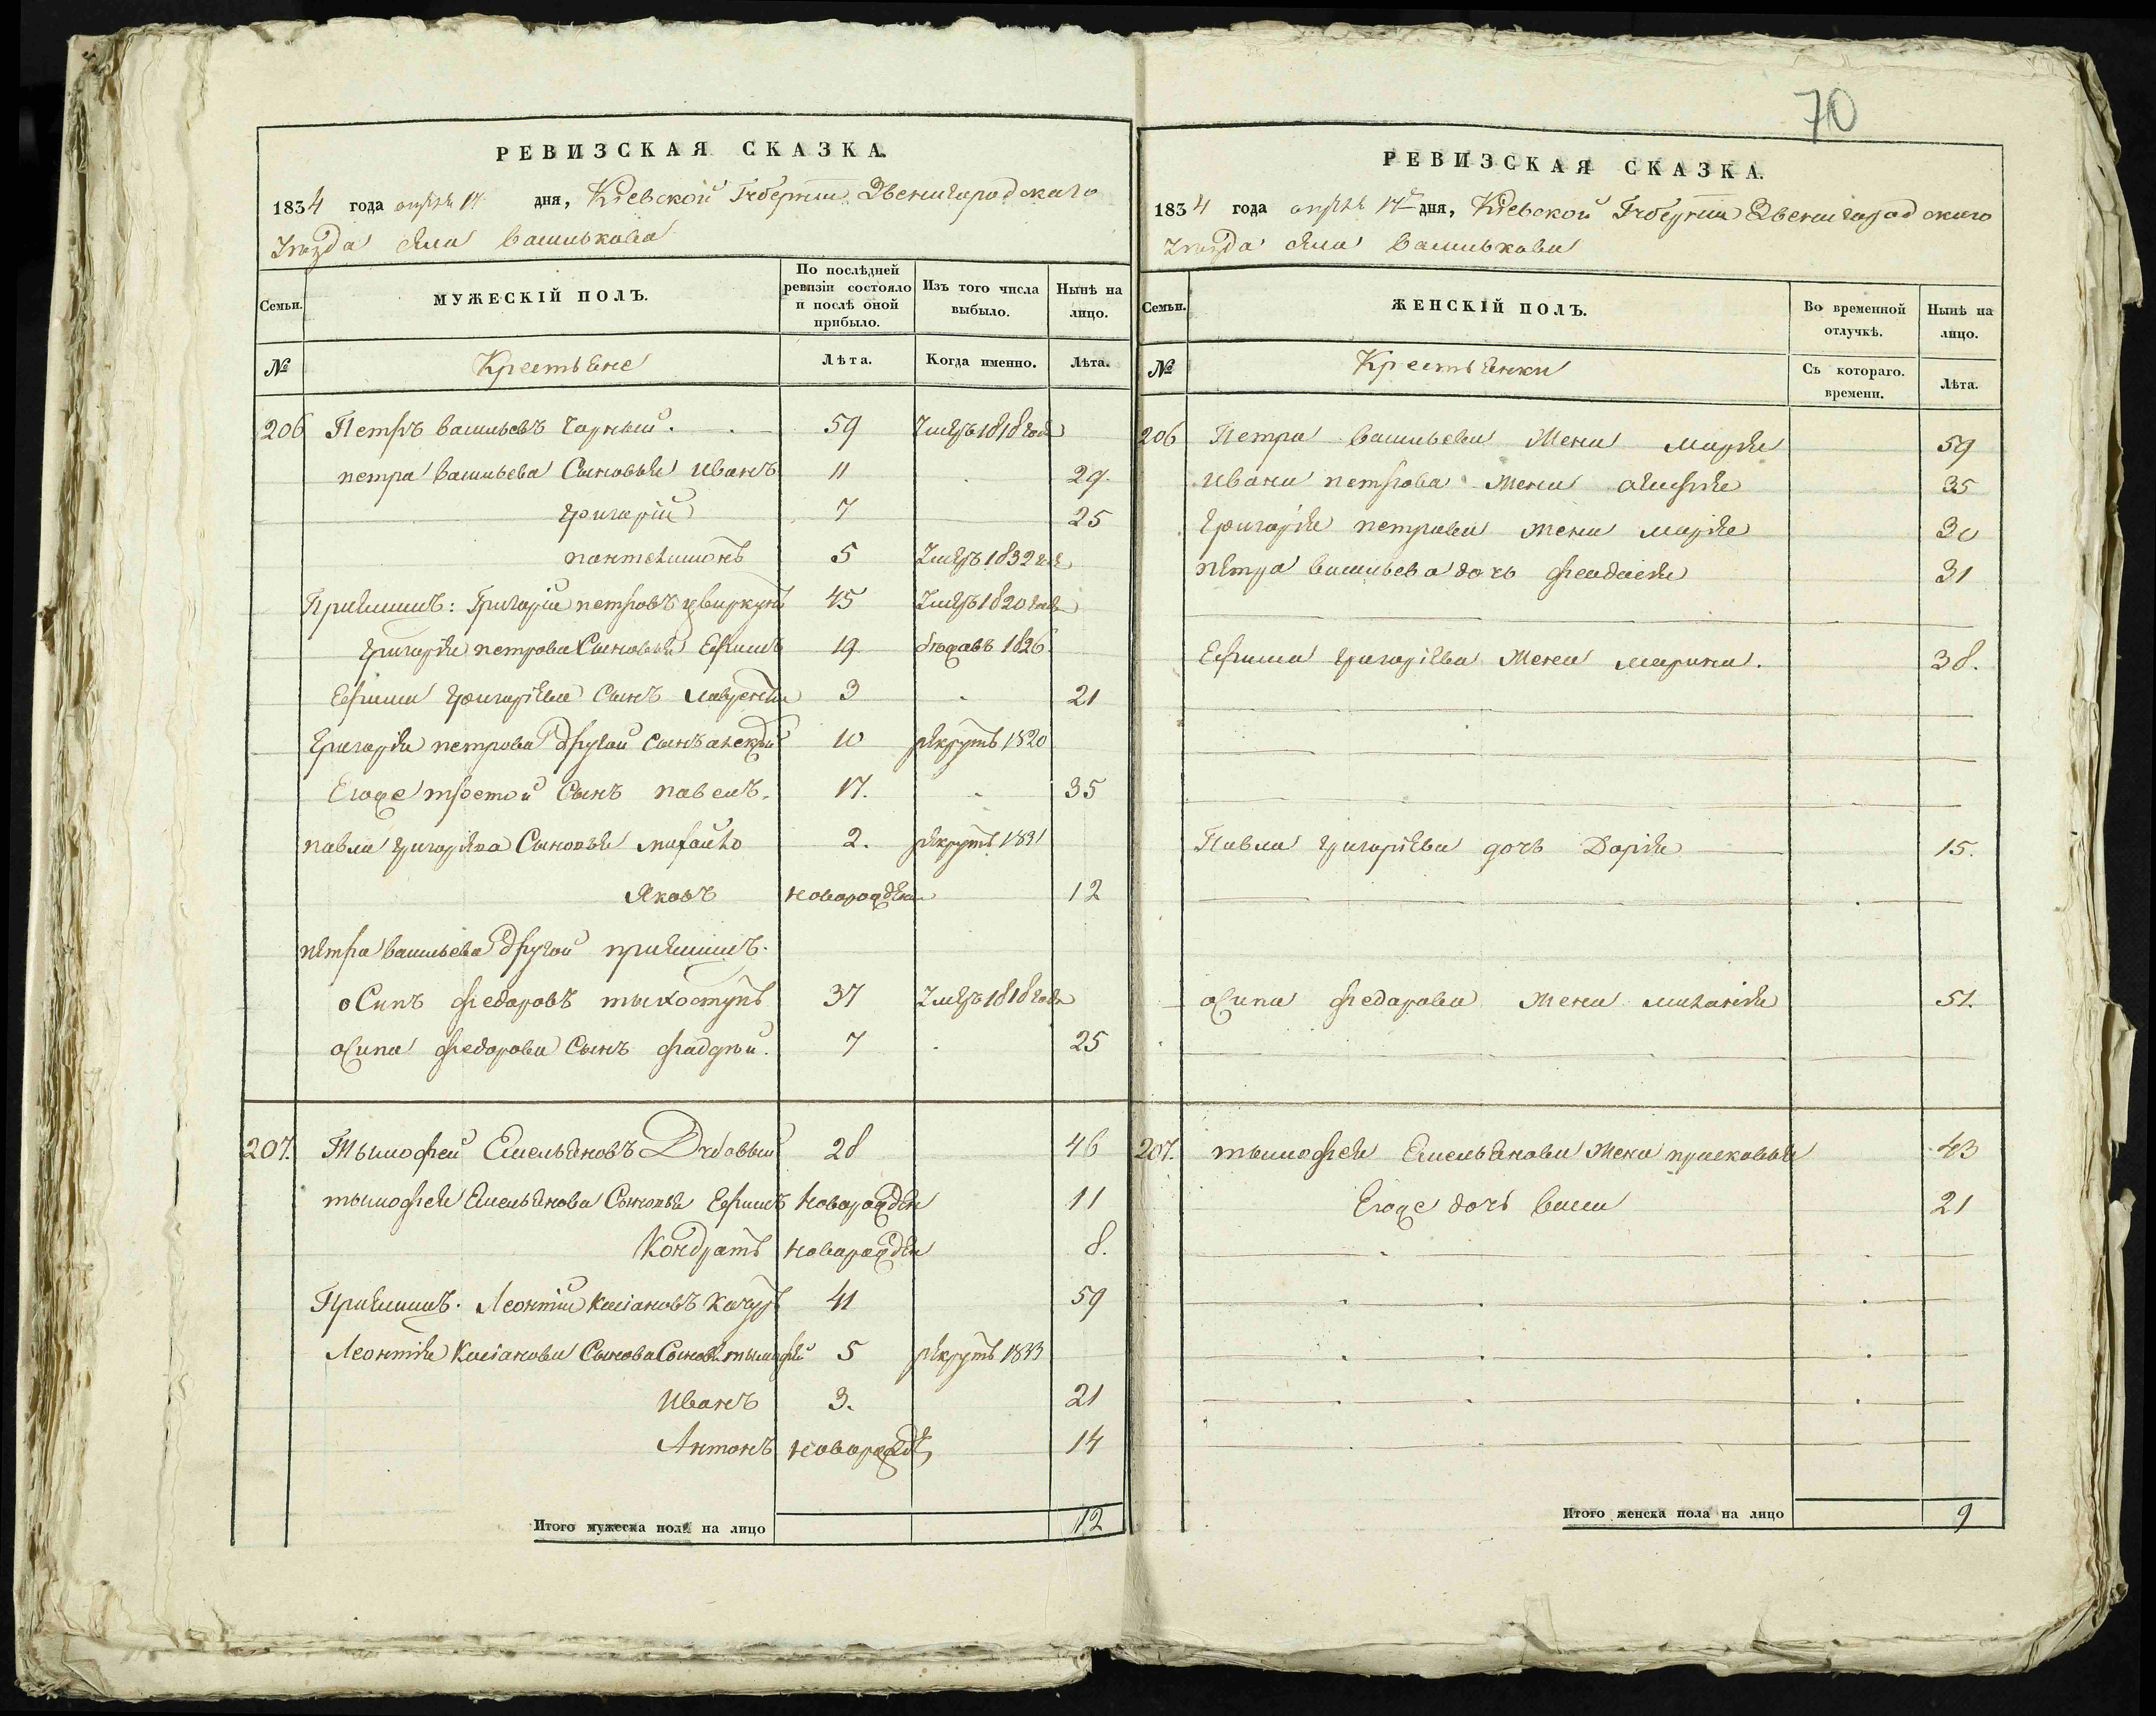 70
РЕВИЗСКАЯ СКАЗКА.
1834 года апреля 17 дня, Кіевской Губерніи Звенигородскаго
уезда села Василькова
Семьи. МУЖЕСКІЙ ПОЛЪ. По послѣдней ревизіи состояло и послѣ оной прибыло. Изъ того числа выбыло. Нынѣ на лицо.
№ Крестьяне Лѣта. Когда именно. Лѣта.
206 Петръ васильевъ Чорный. 59 Умеръ 1818 года
петра васильева Сыновья иванъ 11 29.
григорій 7 25
пантелимонъ 5 Умеръ 1832 года
Приемышъ: Григорій петровъ цвиркунъ 45 Умеръ 1820 года
григорія петрова Сыновья Ефимъ 19 бежавъ 1826
Ефима григоріева Сынъ лаврентій 3 21
григорія петрова другой Сынъ алексей 10 рекрутъ 1820
Егоже третой Сынъ павелъ. 17. 35
павла григоріева Сыновья михайло 2. рекрутъ 1831
Яковъ новорожденъ 12
петра васильева другой приемышъ.
оСипъ федоровъ 37 Умеръ 1818 года
оСипа федорова Сынъ фаддей. 7 25
207. Тымофей Емельяновъ Дубовый 28 46
тымофея Емельянова Сыновья Ефимъ новорожден 11
Кондратъ новорожден 8.
Приемышъ. Леонтій Касіановъ Качуръ 41 59
Леонтія Касіанова Сынова Сыновья тымофей 5 рекрутъ 1833
Иванъ 3. 21
Антонъ новорожде 14
Итого мужеска пола на лицо 12
РЕВИЗСКАЯ СКАЗКА.
1834 года апреля 17 дня, Кіевской Губерніи Звенигородскаго
уезда села Василькова
Семьи. ЖЕНСКІЙ ПОЛЪ. Во временной отлучкѣ. Нынѣ на лицо.
№ Крестьянки Съ котораго. времени. Лѣта.
206 Петра васильева Жена марія 59
ивана петрова жена 35
григорія петрова жена марія 30
петра васильева дочь феодосія 31
Ефима григоріева Жена марина. 38.
Павла григоріева дочь Дарія 15.
оСипа федорова жена миланія 51.
207. тымофея Емельянова Жена прасковья 43
Егоже дочь васса 21
Итого женска пола на лицо 9